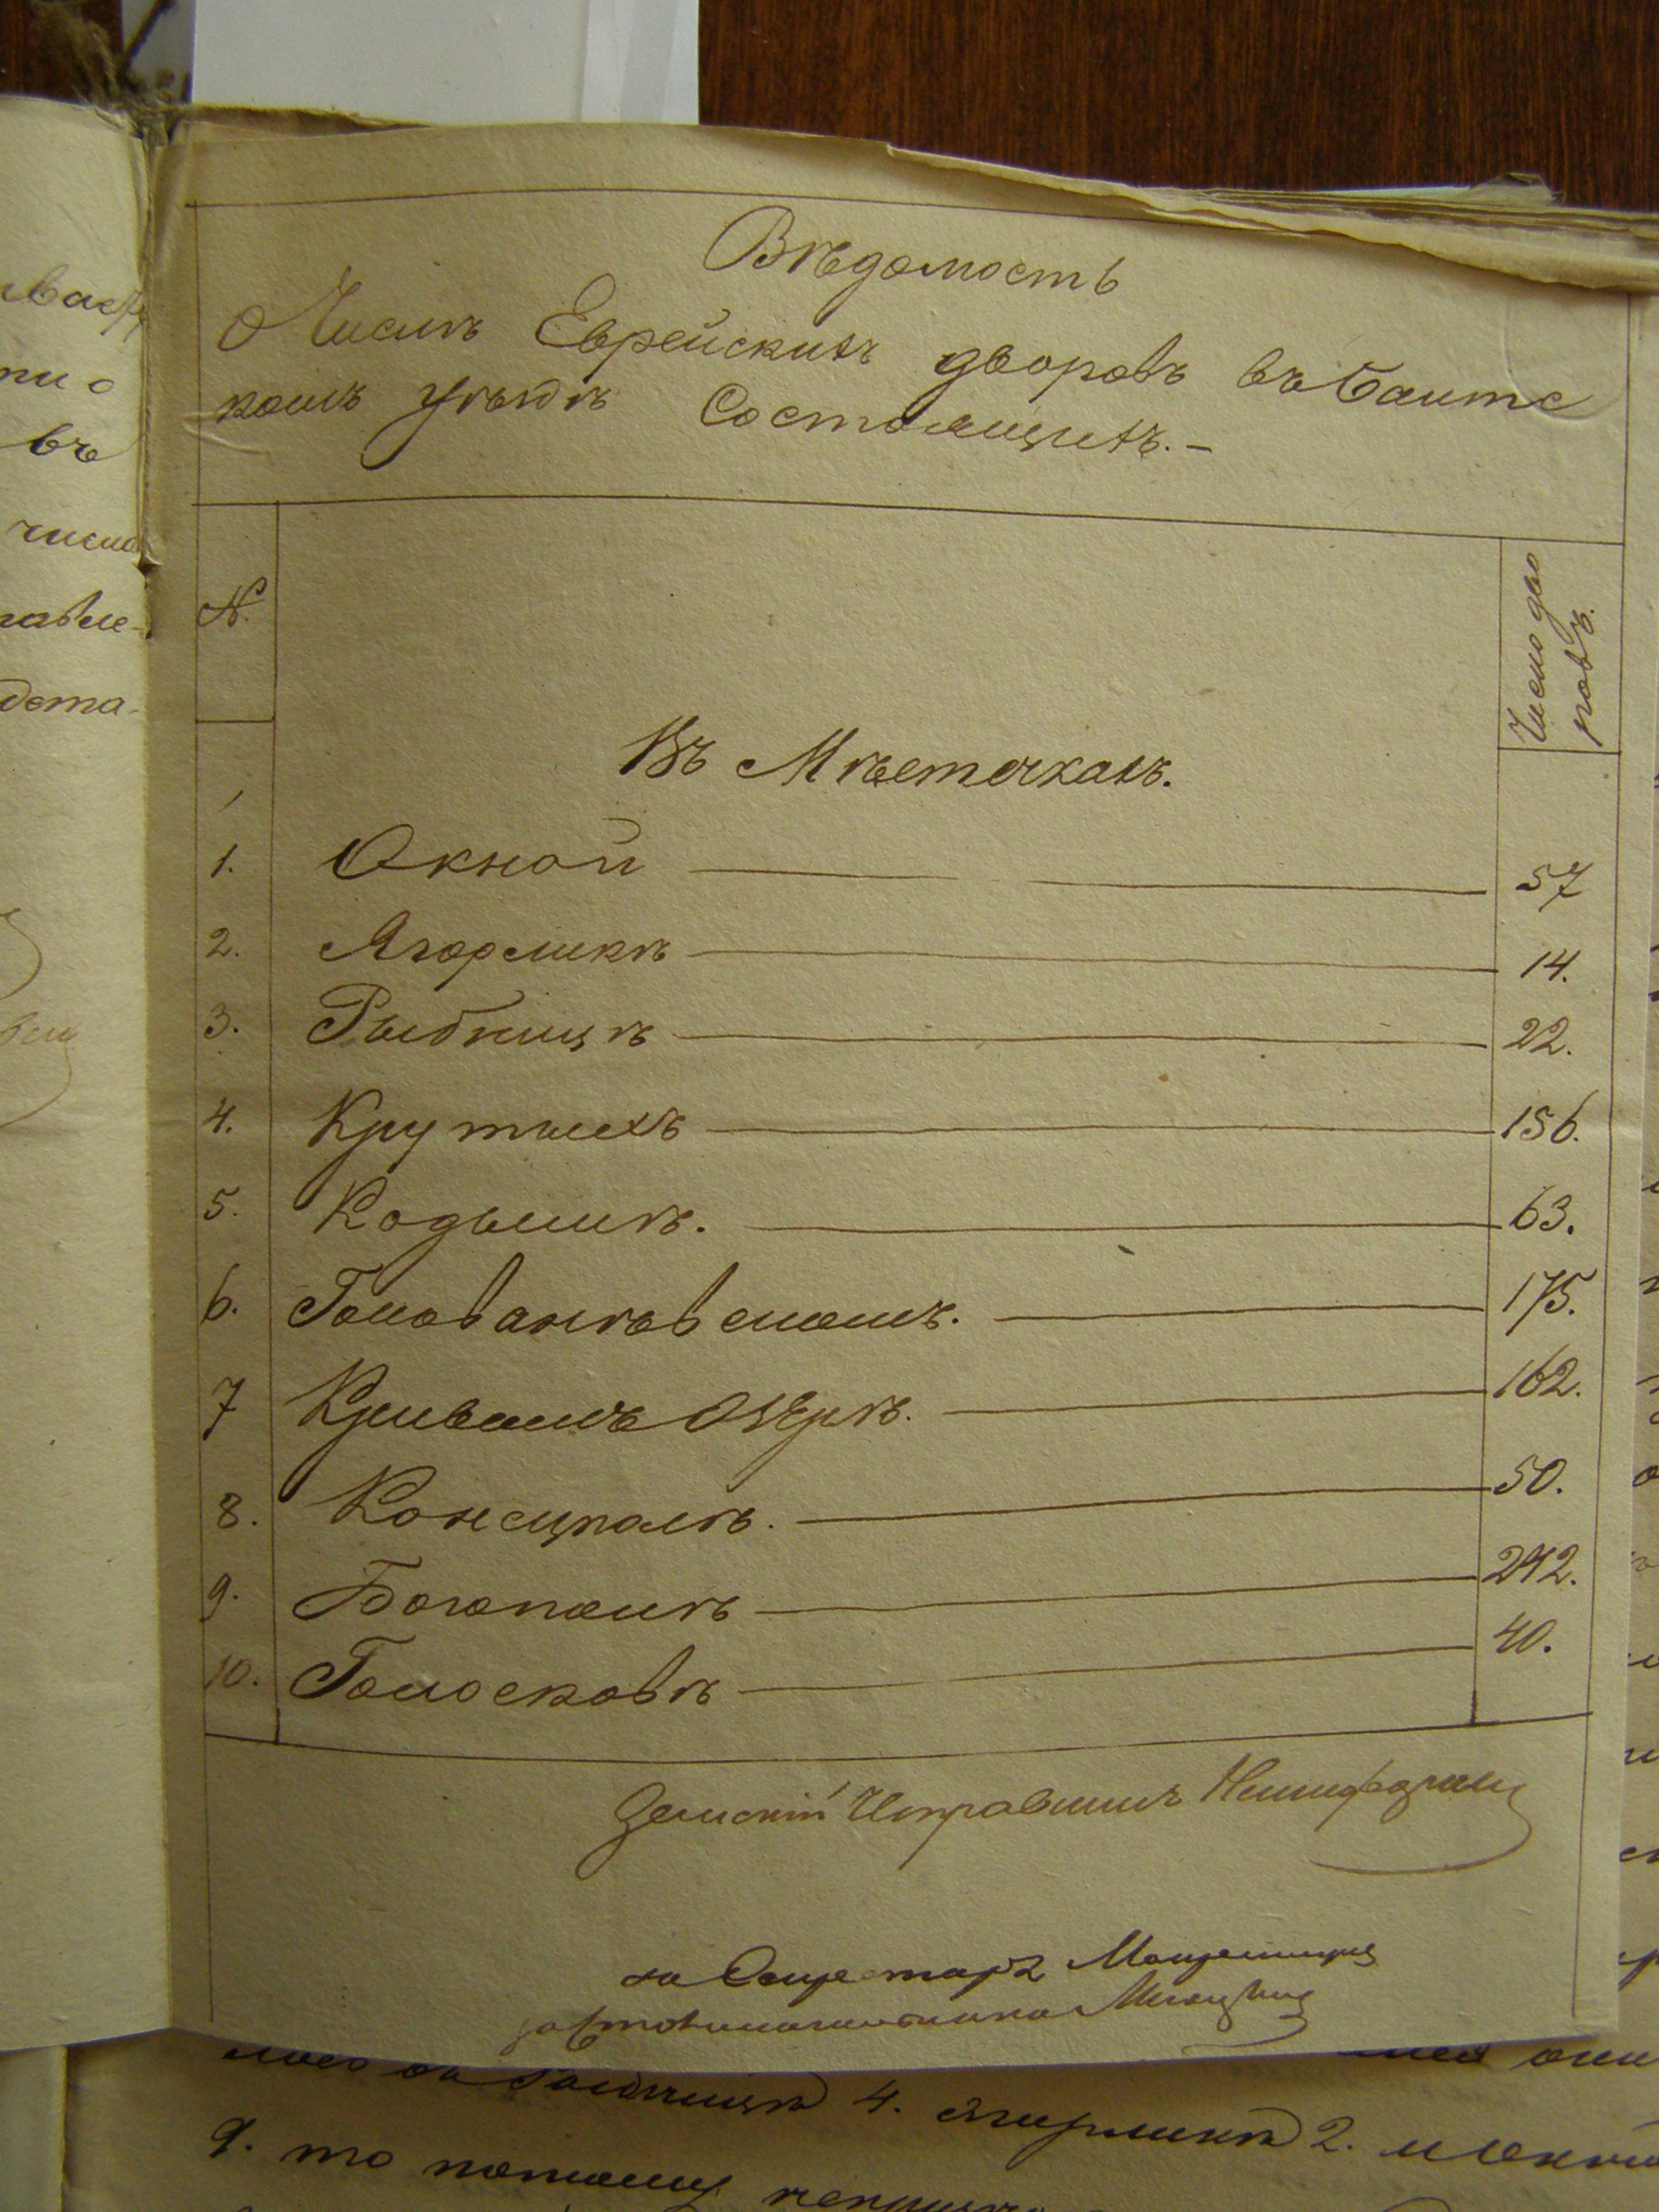 Вѣдомость
О Числѣ Еврейскихъ дворовъ въ Балтс
комъ уѣздѣ Состоящихъ. –
№.
Число дво
ровъ.
Въ Мѣстечкахъ.
1. Окной 57
2. Ягорликѣ 14.
3. Рыбницѣ 22.
4. Крутыхъ 156.
5. Кодымѣ. 63.
6.Голованѣвскомъ. 175.
7 Кривомъ Озерѣ. 162.
8. Конецполѣ. 50.
9. Богополѣ 242.
10. Голосковѣ 40.
Земскій Исправникъ
за Секретаря
за Столоначальника
4. Ягорлика 2.
9. то
въ
числа